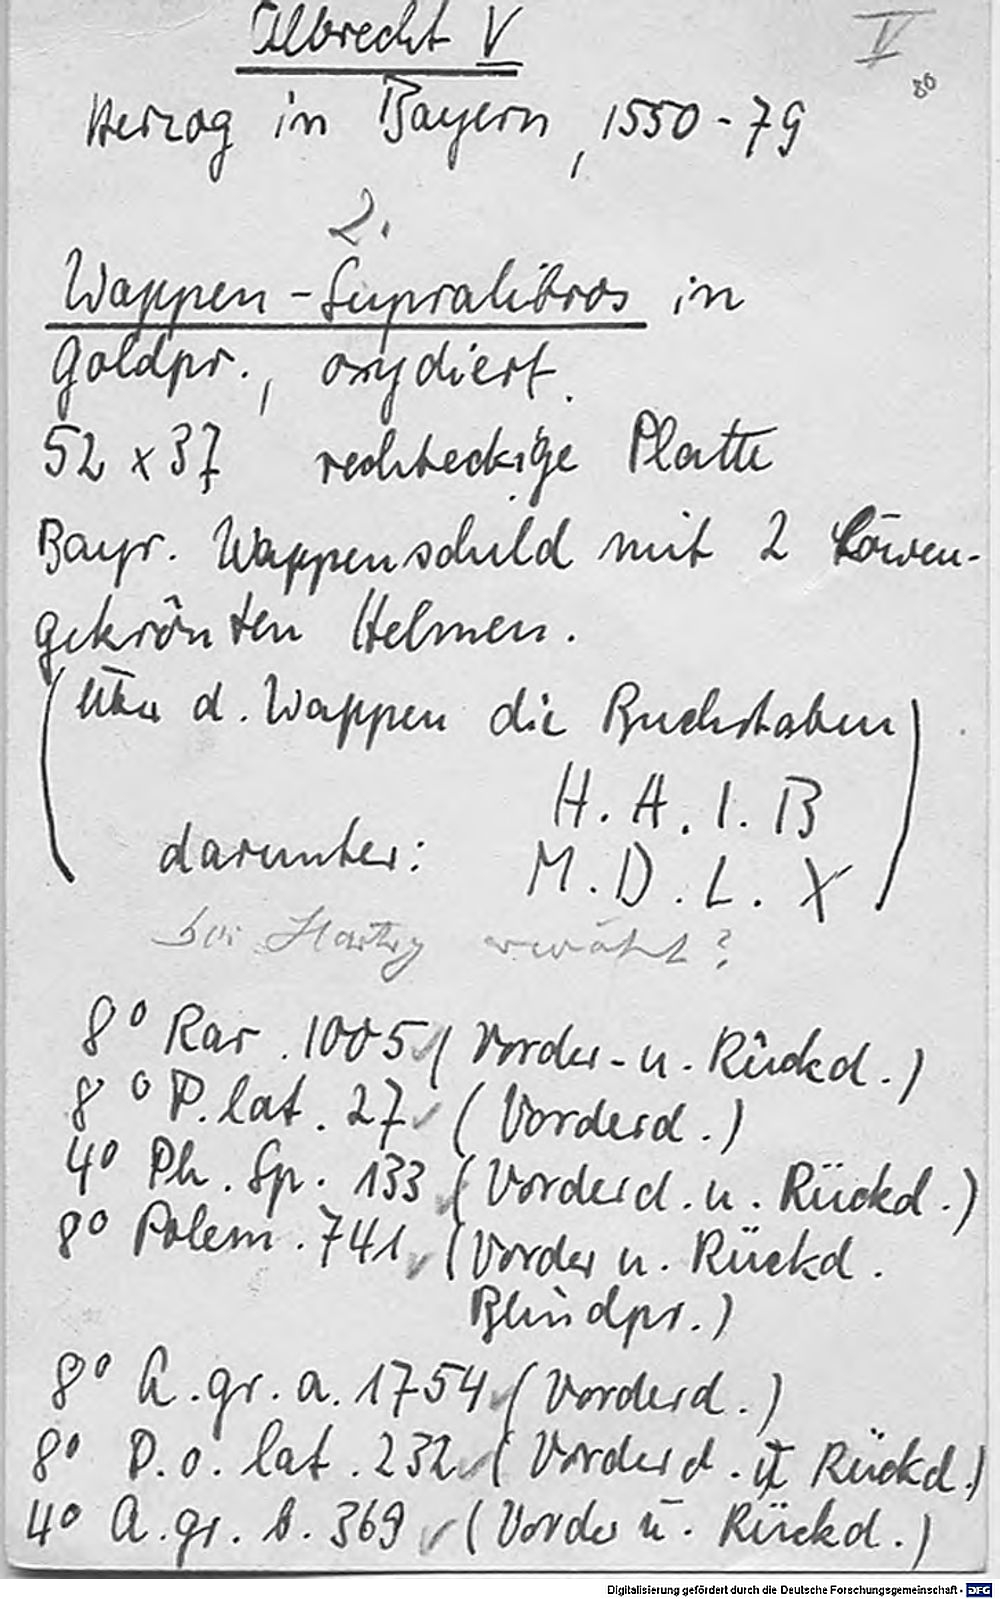 Albrecht V
V
80
Herzog in Bayern, 1550-79
2.
Wappen-Supralibros in
Goldpr., oxydiert.
52 x 37 rechteckige Platte
Bayr. Wappenschild mit 2 Löwen-
gekrönten Helmen.
(Über d. Wappen die Buchstaben
H. A. I. B
darunter: M. D. L. X)
bei Hartig erwähnt?
8° Rar. 1005 (Vorder- u. Rückd.)
8° P. lat. 27 (Vorderd.)
4° Ph. Sp. 133 (Vorderd. u. Rückd.)
8° Polem. 741 (Vorder u. Rückd.
Blindpr.)
8° A. gr. a. 1754 (Vorderd.)
8° P. o. lat. 232 (Vorderd. u Rückd.)
4° A. gr. b. 369 (Vorder u. Rückd.)
Digitalisierung gefördert durch die Deutsche Forschungsgemeinschaft - DFG